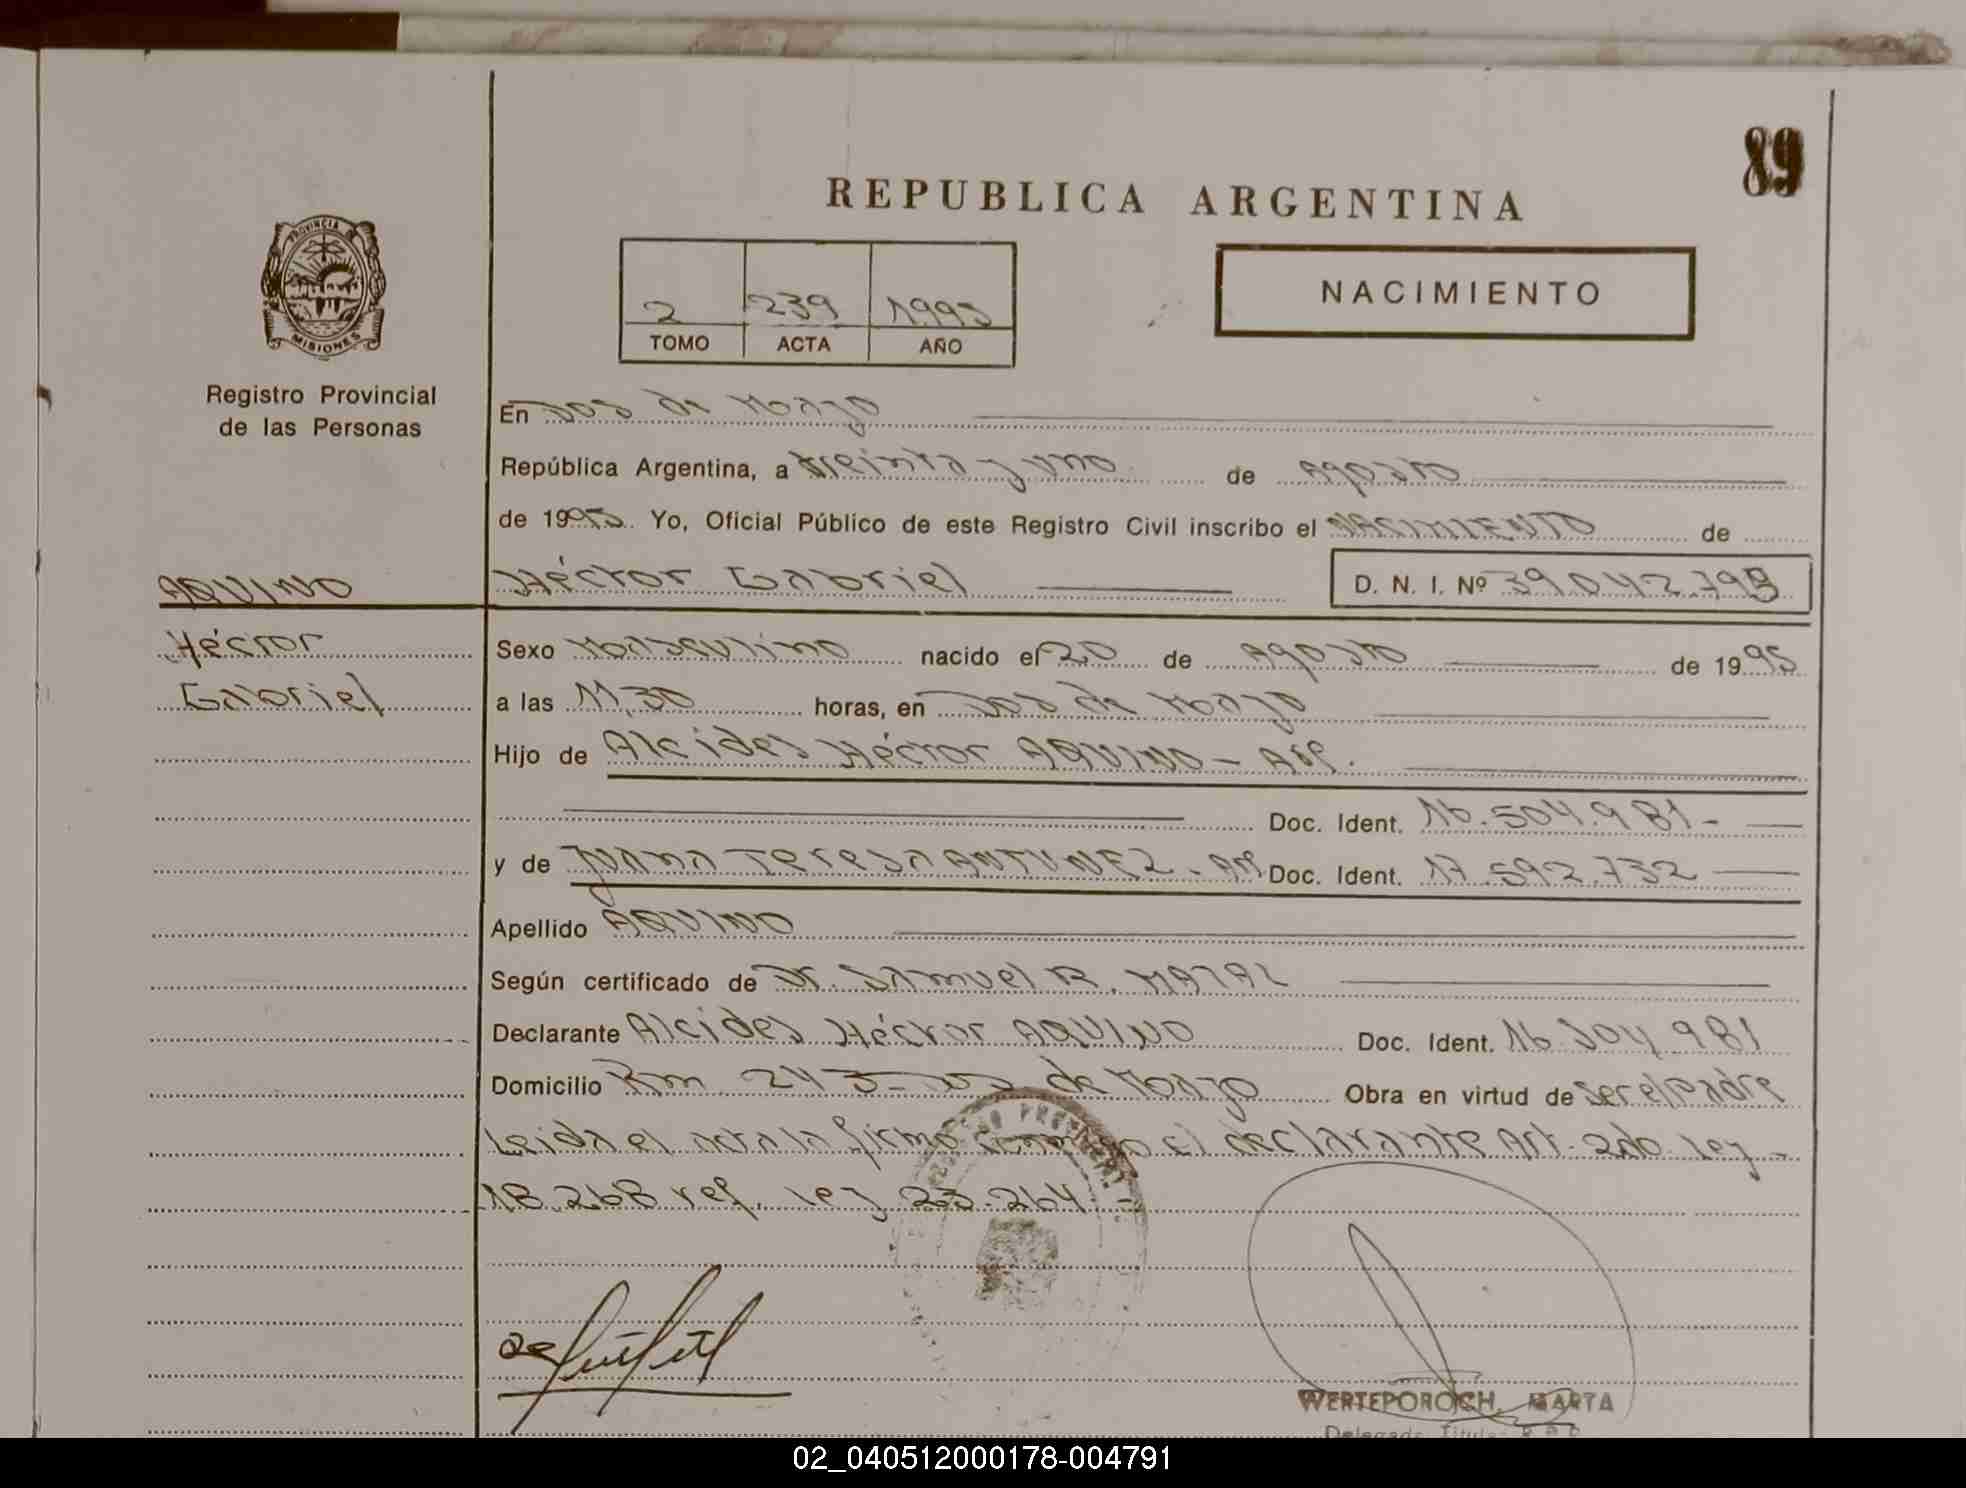 89
REPUBLICA ARGENTINA
PROVINCIA DE
MISIONES
Registro Provincial
de las Personas
2 239 1995
TOMO ACTA AÑO
NACIMIENTO
En Dos de Mayo
República Argentina, a treinta y uno de Agosto
de 1995. Yo, Oficial Público de este Registro Civil inscribo el NACIMIENTO de
AQUINO
Héctor Gabriel D. N. I. Nº 39.042.799
Héctor
Gabriel
Sexo Masculino nacido el 20 de Agosto de 1995
a las 11,30 horas, en Dos de Mayo
Hijo de Alcides Héctor AQUINO - Arg.
Doc. Ident. 16.504.981-
y de Juana Teresa ANTUNEZ - Arg Doc. Ident. 17.592.732
Apellido AQUINO
Según certificado de Dr. Samuel R.
Declarante Alcides Héctor AQUINO Doc. Ident. 16.504.981
Domicilio Km 243 - Dos de Mayo Obra en virtud de ser el padre
Leida el acta la firma conmigo el declarante Art. 2do. Ley -
18.268 ref. Ley 23.264 -
WERTEPOROCH, MARTA
02_040512000178-004791